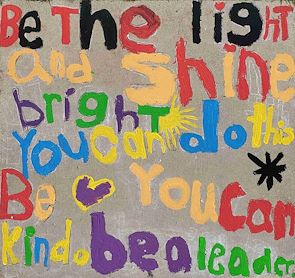 Be the light
and shine
bright
You can do this
Be You Can
Kind be a leader